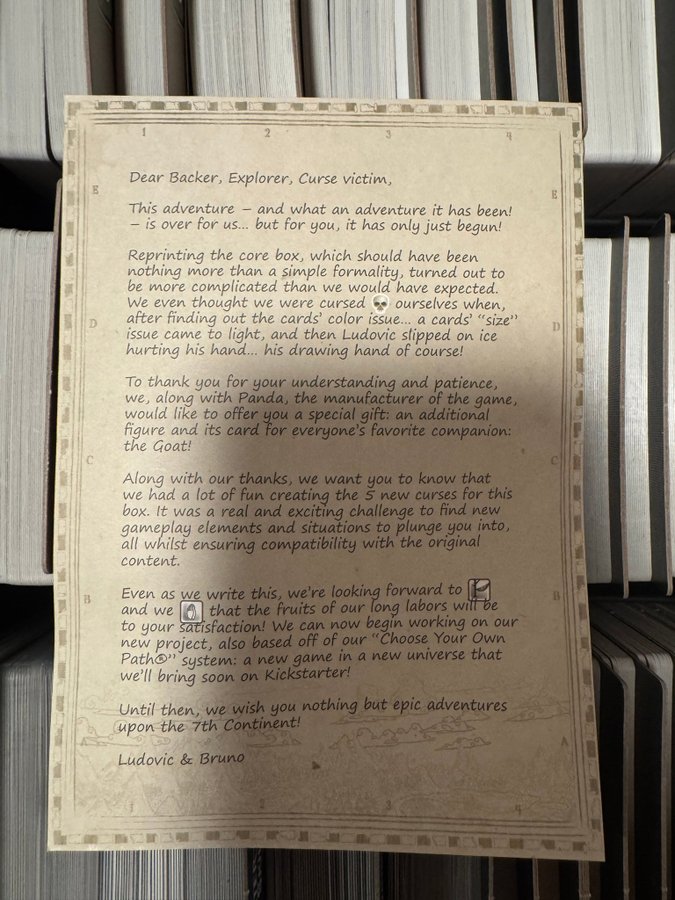 1 2 3 4
E E
Dear Backer, Explorer, Curse victim,
This adventure – and what an adventure it has been!
– is over for us... but for you, it has only just begun!
Reprinting the core box, which should have been
nothing more than a simple formality, turned out to
be more complicated than we would have expected.
We even thought we were cursed ourselves when,
after finding out the cards' color issue... a cards' "size"
D D
issue came to light, and then Ludovic slipped on ice
hurting his hand... his drawing hand of course!
To thank you for your understanding and patience,
we, along with Panda, the manufacturer of the game,
would like to offer you a special gift: an additional
figure and its card for everyone's favorite companion:
the Goat!
C C
Along with our thanks, we want you to know that
we had a lot of fun creating the 5 new curses for this
box. It was a real and exciting challenge to find new
gameplay elements and situations to plunge you into,
all whilst ensuring compatibility with the original
content.
Even as we write this, we're looking forward to
B B
and we that the fruits of our long labors will be
to your satisfaction! We can now begin working on our
new project, also based off of our "Choose Your Own
Path®" system: a new game in a new universe that
we'll bring soon on Kickstarter!
Until then, we wish you nothing but epic adventures
upon the 7th Continent!
A A
Ludovic & Bruno
1 2 3 4